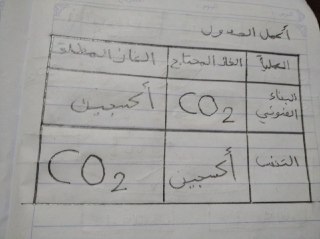 أكمل الجدول
العملية الغاز المحتاج الغاز المطلق
البناء
الضوئي CO2 أكسجين
التنفس أكسجين CO2